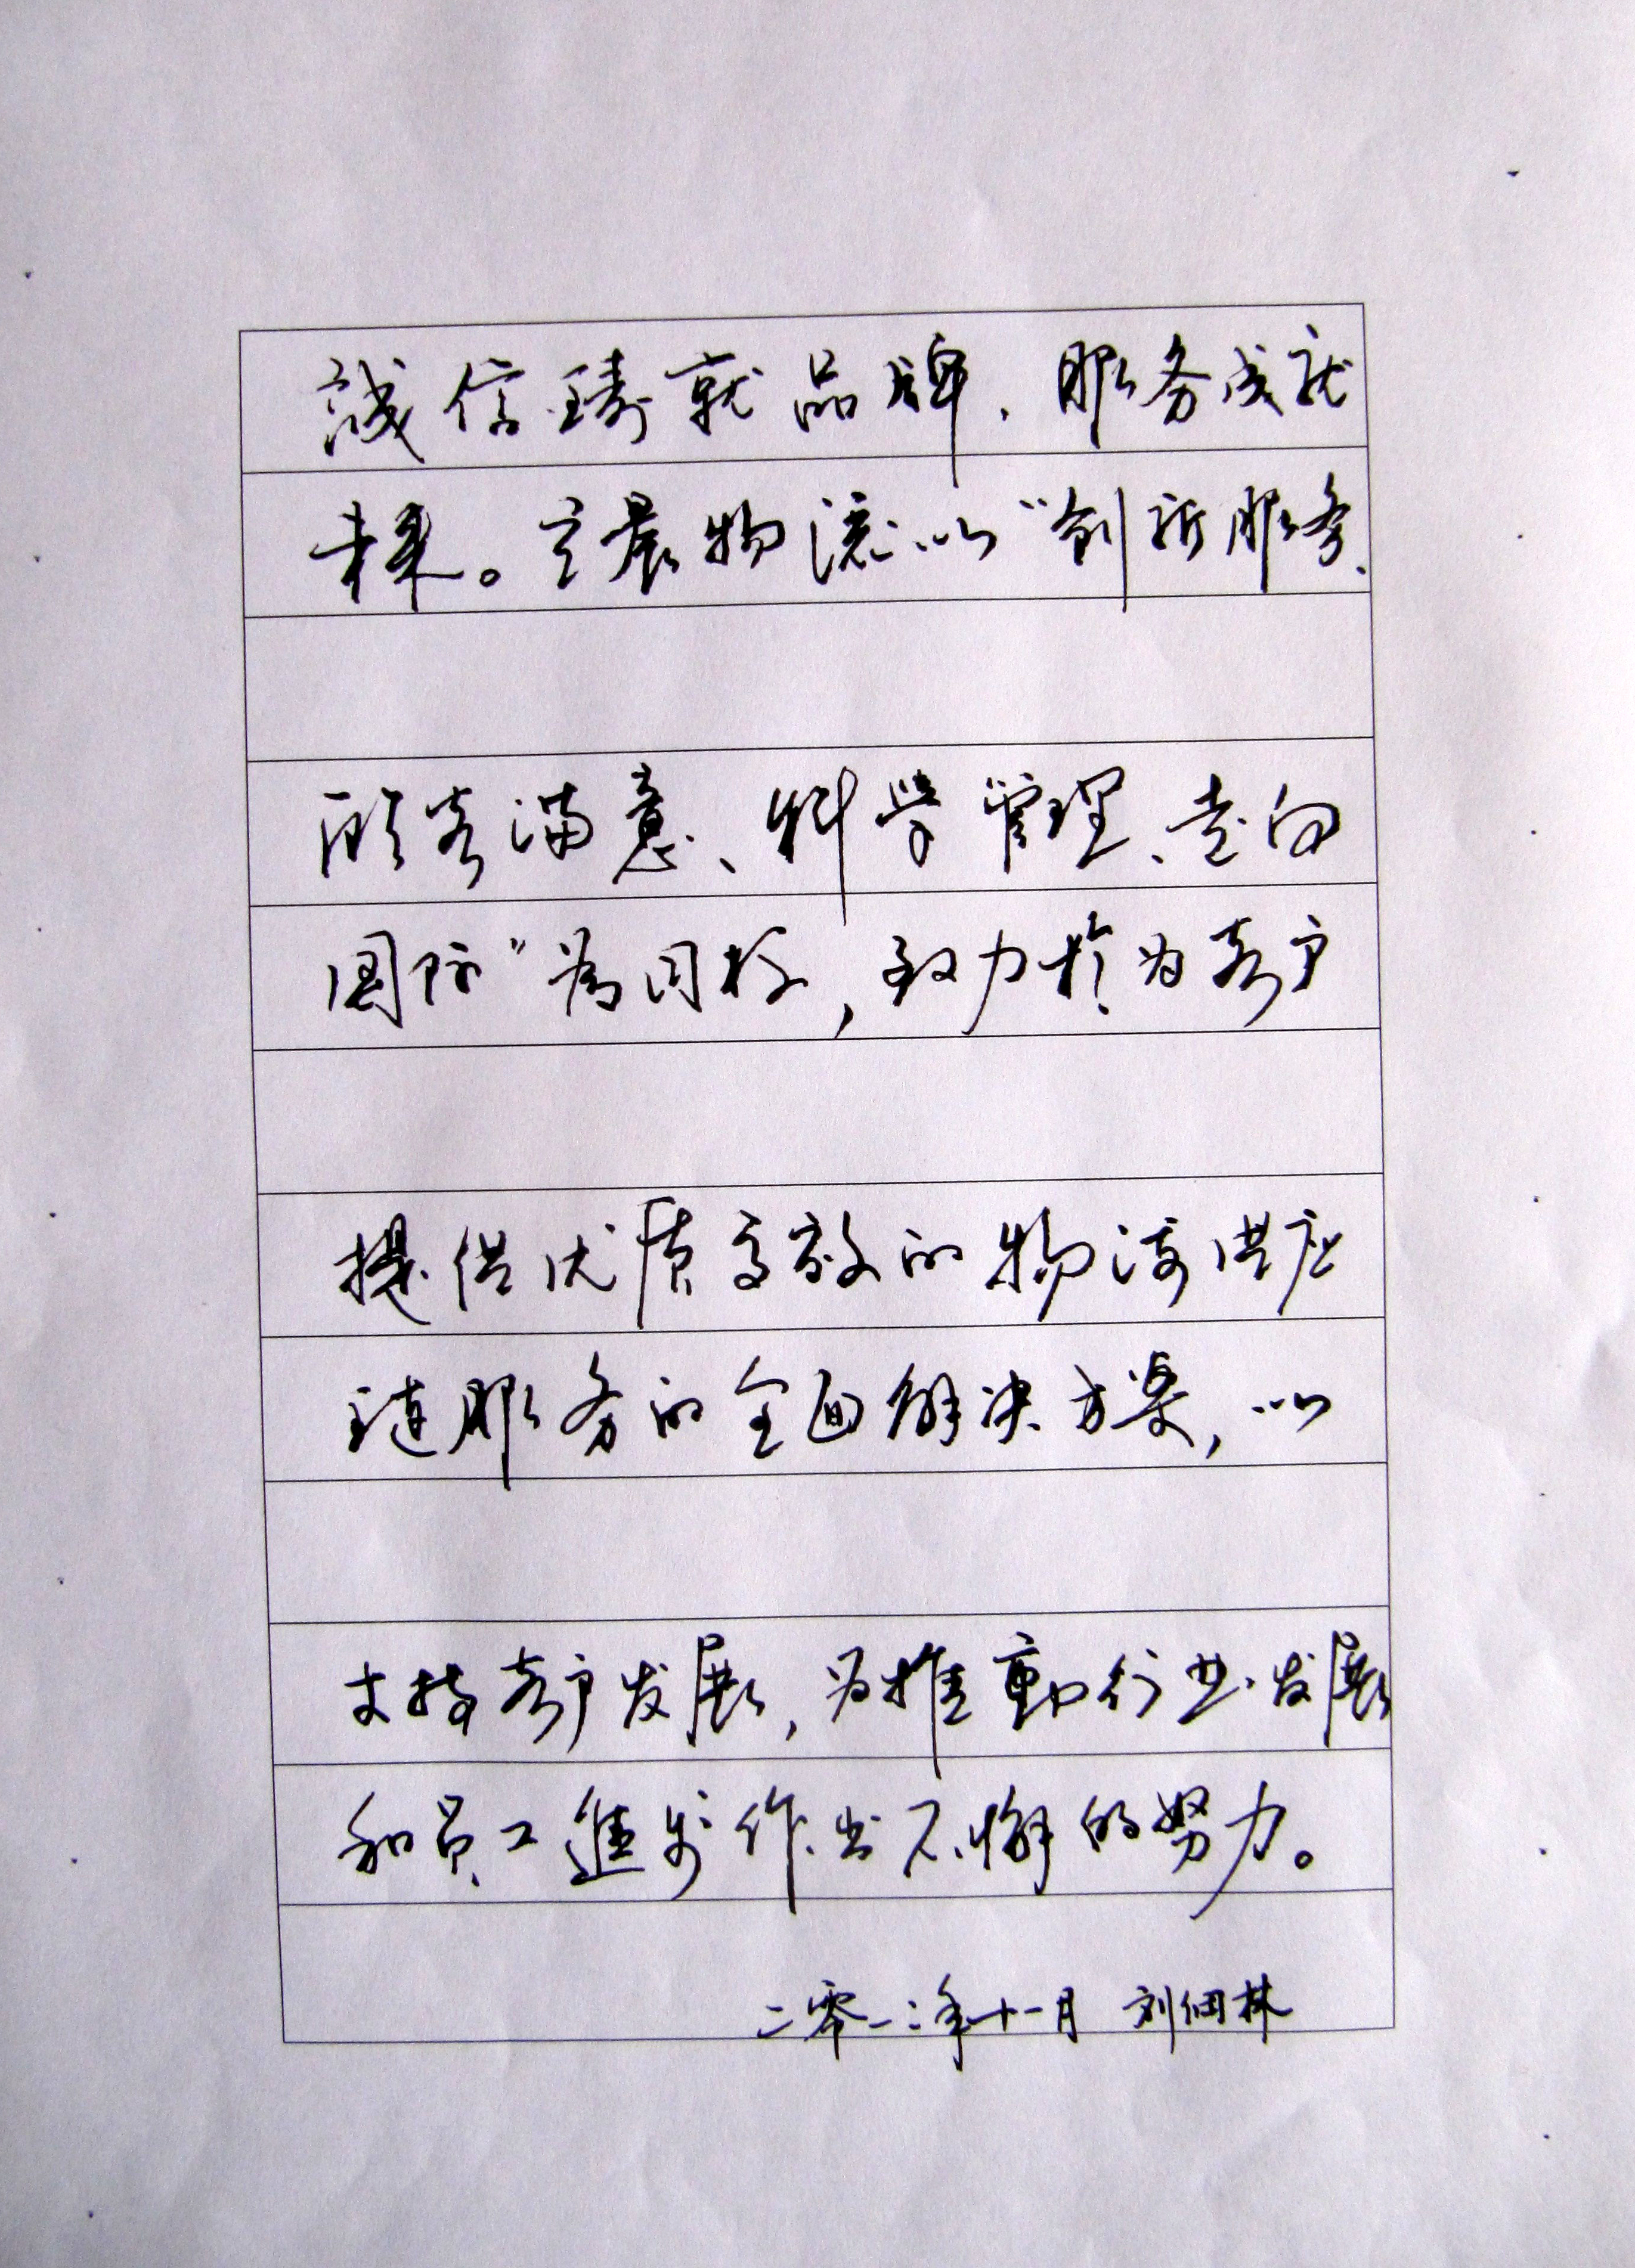 誠信鑄就品牌、服务成就
未来。主晨物流以“创新服务、
顾客满意、科学管理、走向
国际”為目标，致力於为客户
提供优质高效的物流供应
链服务的全面解决方案，以
支持客户发展，为推動行业发展
和员工進步作出不懈的努力。
二零一二年十一月 刘佃林